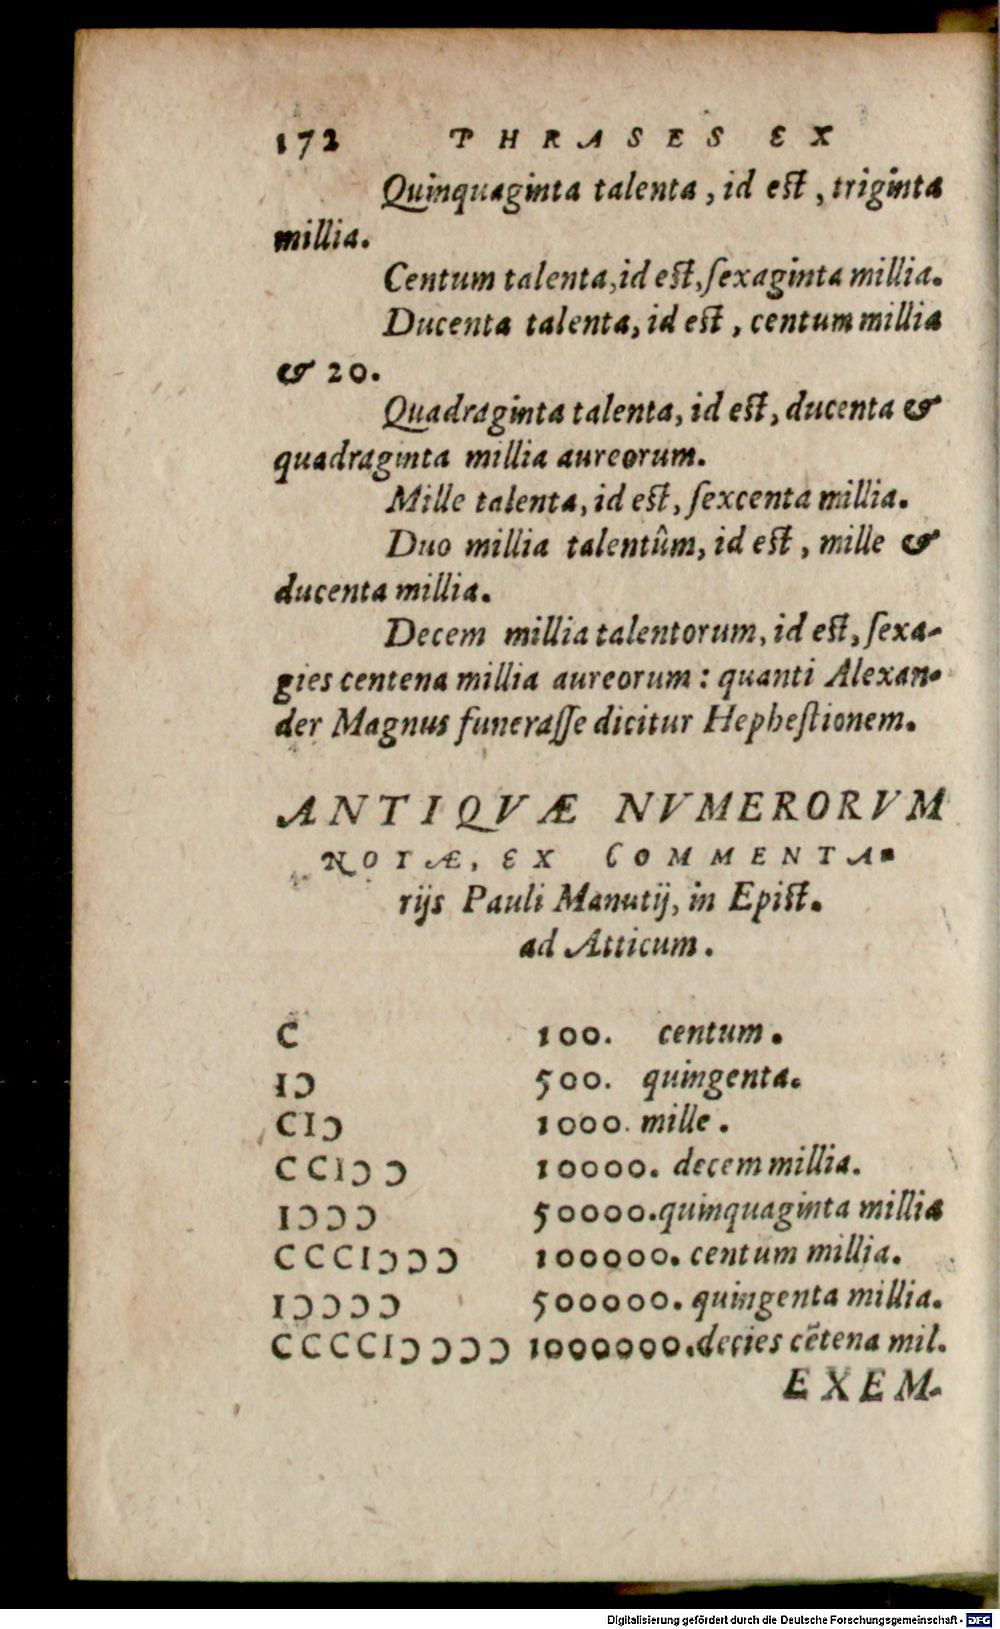 172 PHRASES EX
Quinquaginta talenta, id est, triginta
millia.
Centum talenta, id est, ſexaginta millia.
Ducenta talenta, id est, centum millia
& 20.
Quadraginta talenta, id est, ducenta &
quadraginta millia aureorum.
Mille talenta, id est, ſexcenta millia.
Duo millia talentûm, id est, mille &
ducenta millia.
Decem millia talentorum, id est, ſexa-
gies centena millia aureorum: quanti Alexan-
der Magnus funeraſſe dicitur Hepheſtionem.
ANTIQVÆ NVMERORVM
NOTÆ, EX COMMENTA-
rijs Pauli Manutij, in Epist.
ad Atticum.
C 100. centum.
IↃ 500. quingenta.
CIↃ 1000. mille.
CCIↃↃ 10000. decem millia.
IↃↃↃ 50000. quinquaginta millia
CCCIↃↃↃ 100000. centum millia.
IↃↃↃↃ 500000. quingenta millia.
CCCCIↃↃↃↃ 1000000. decies cẽtena mil.
EXEM-
Digitalisierung gefördert durch die Deutsche Forschungsgemeinschaft - DFG